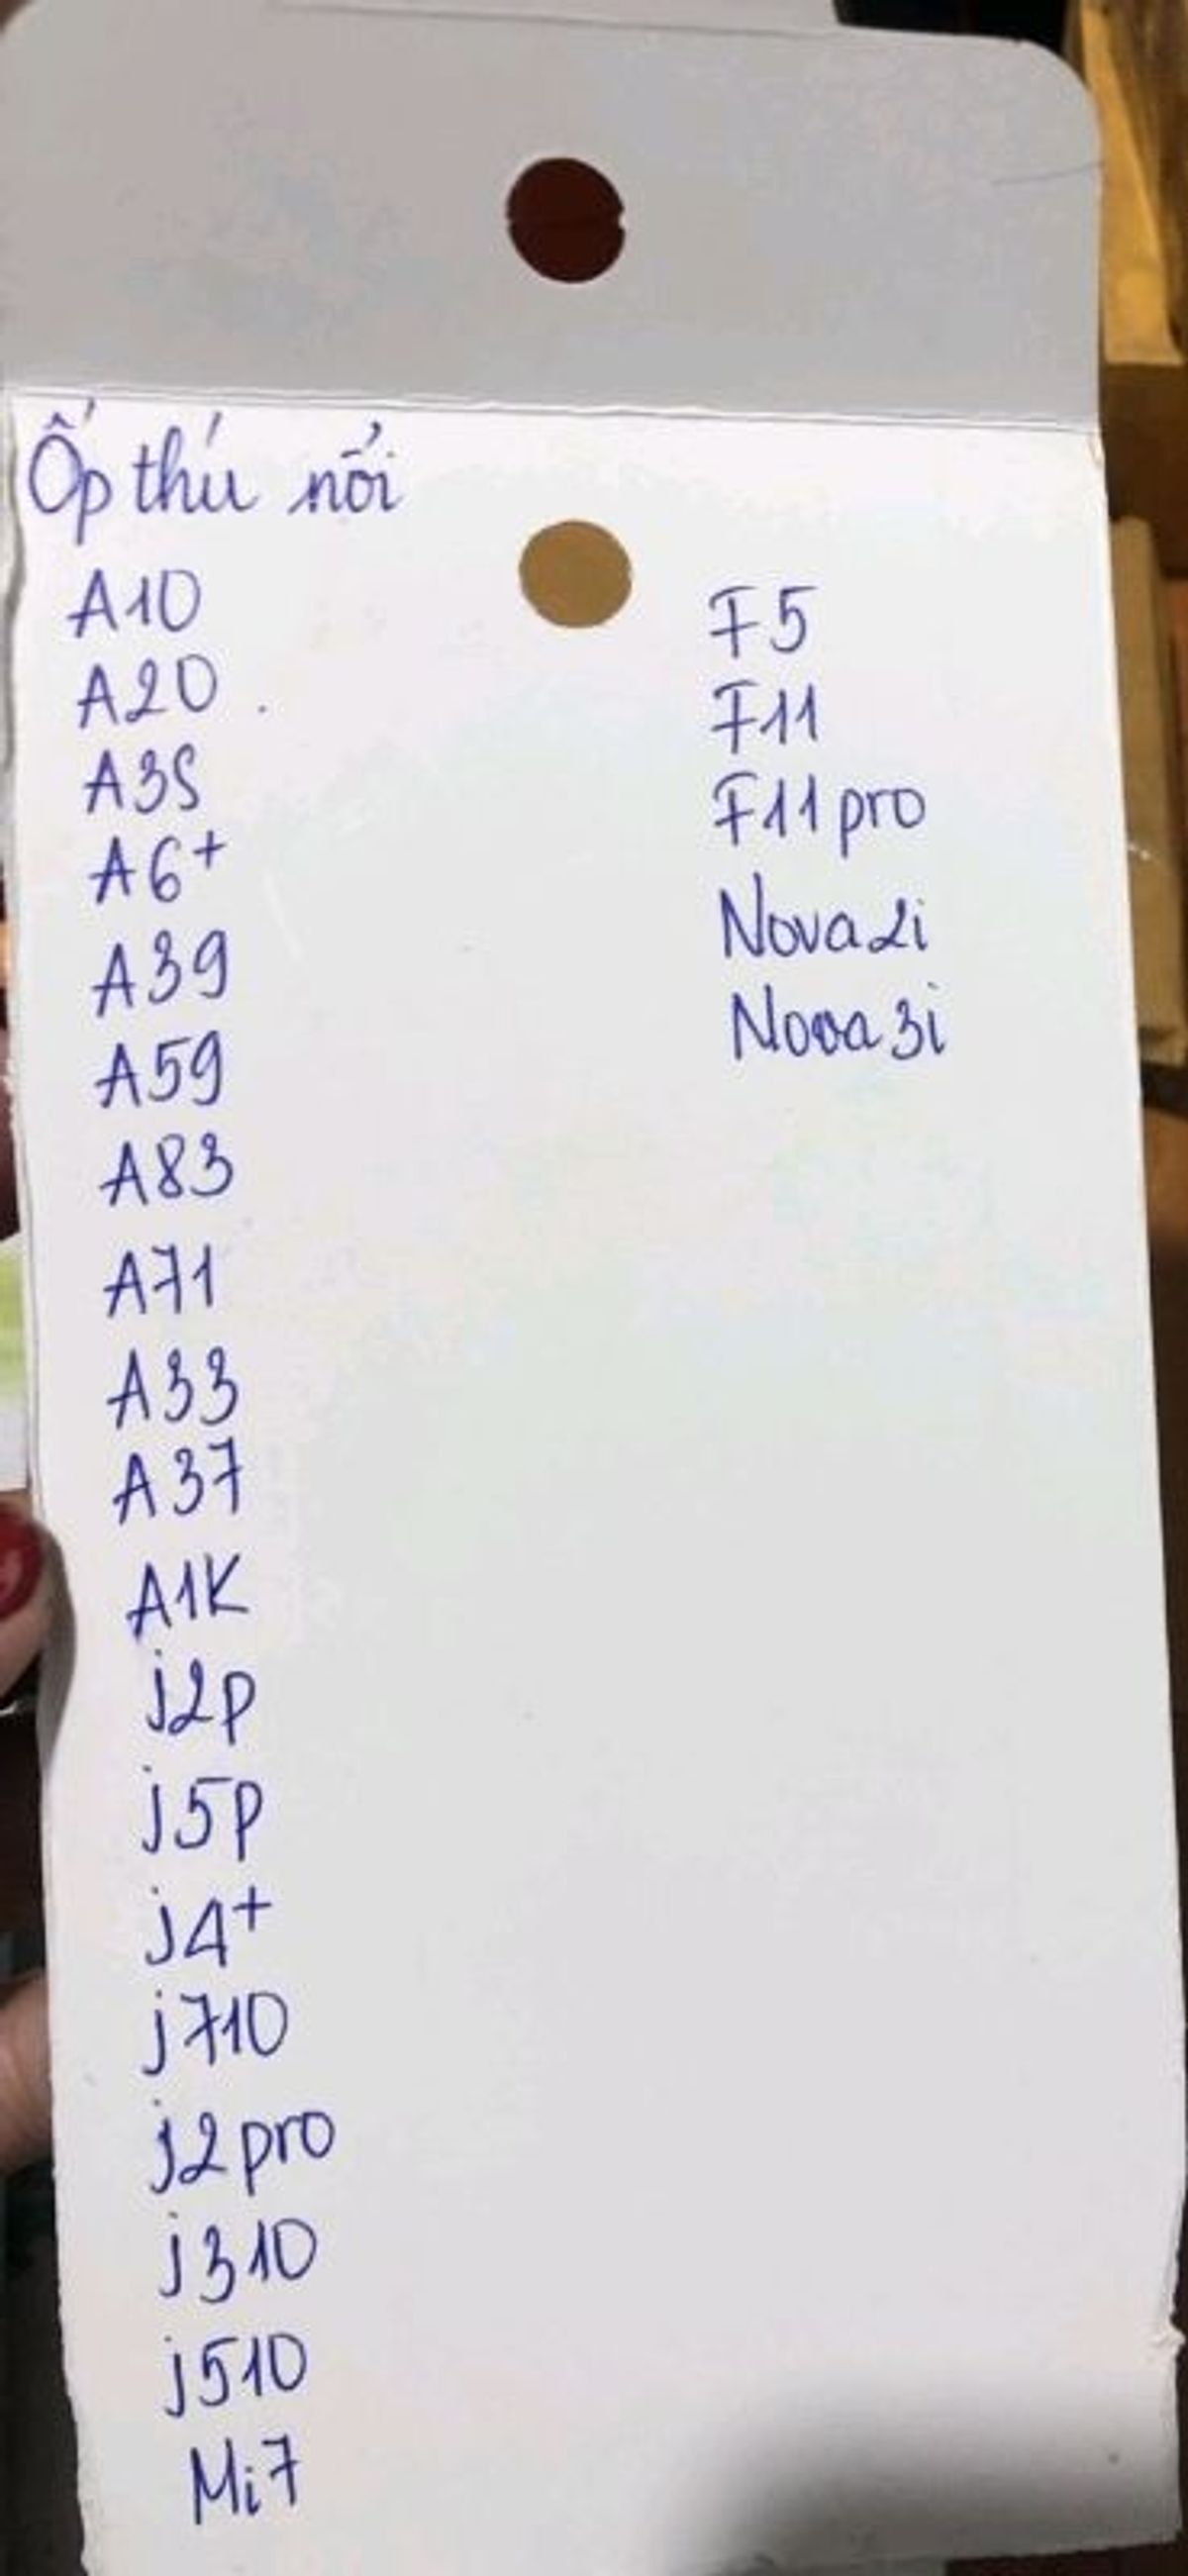 Ốp thú nổi
A10
A20
A3S
A6+
A39
A59
A83
A71
A33
A37
A1K
j2p
j5p
j4+
j710
j2pro
j310
j510
Mi7
F5
F11
F11pro
Nova2i
Nova3i